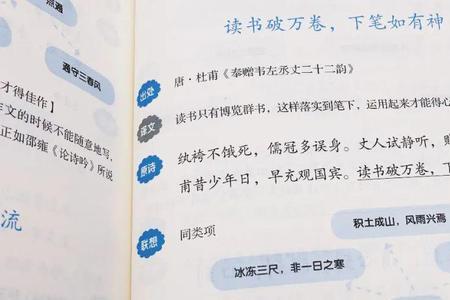 点通
遇守三春风
才得佳作】
作文的时候不能随意地写,
正如邵雍《论诗吟》所说
流
读书破万卷,下笔如有神
出处
唐·杜甫《奉赠韦左丞丈二十二韵》
译文
读书只有博览群书,这样落实到笔下,运用起来才能得心
原诗
纨袴不饿死,儒冠多误身。丈人试静听,
甫昔少年日,早充观国宾。读书破万卷,下
联想
同类项
积土成山,风雨兴焉
冰冻三尺,非一日之寒